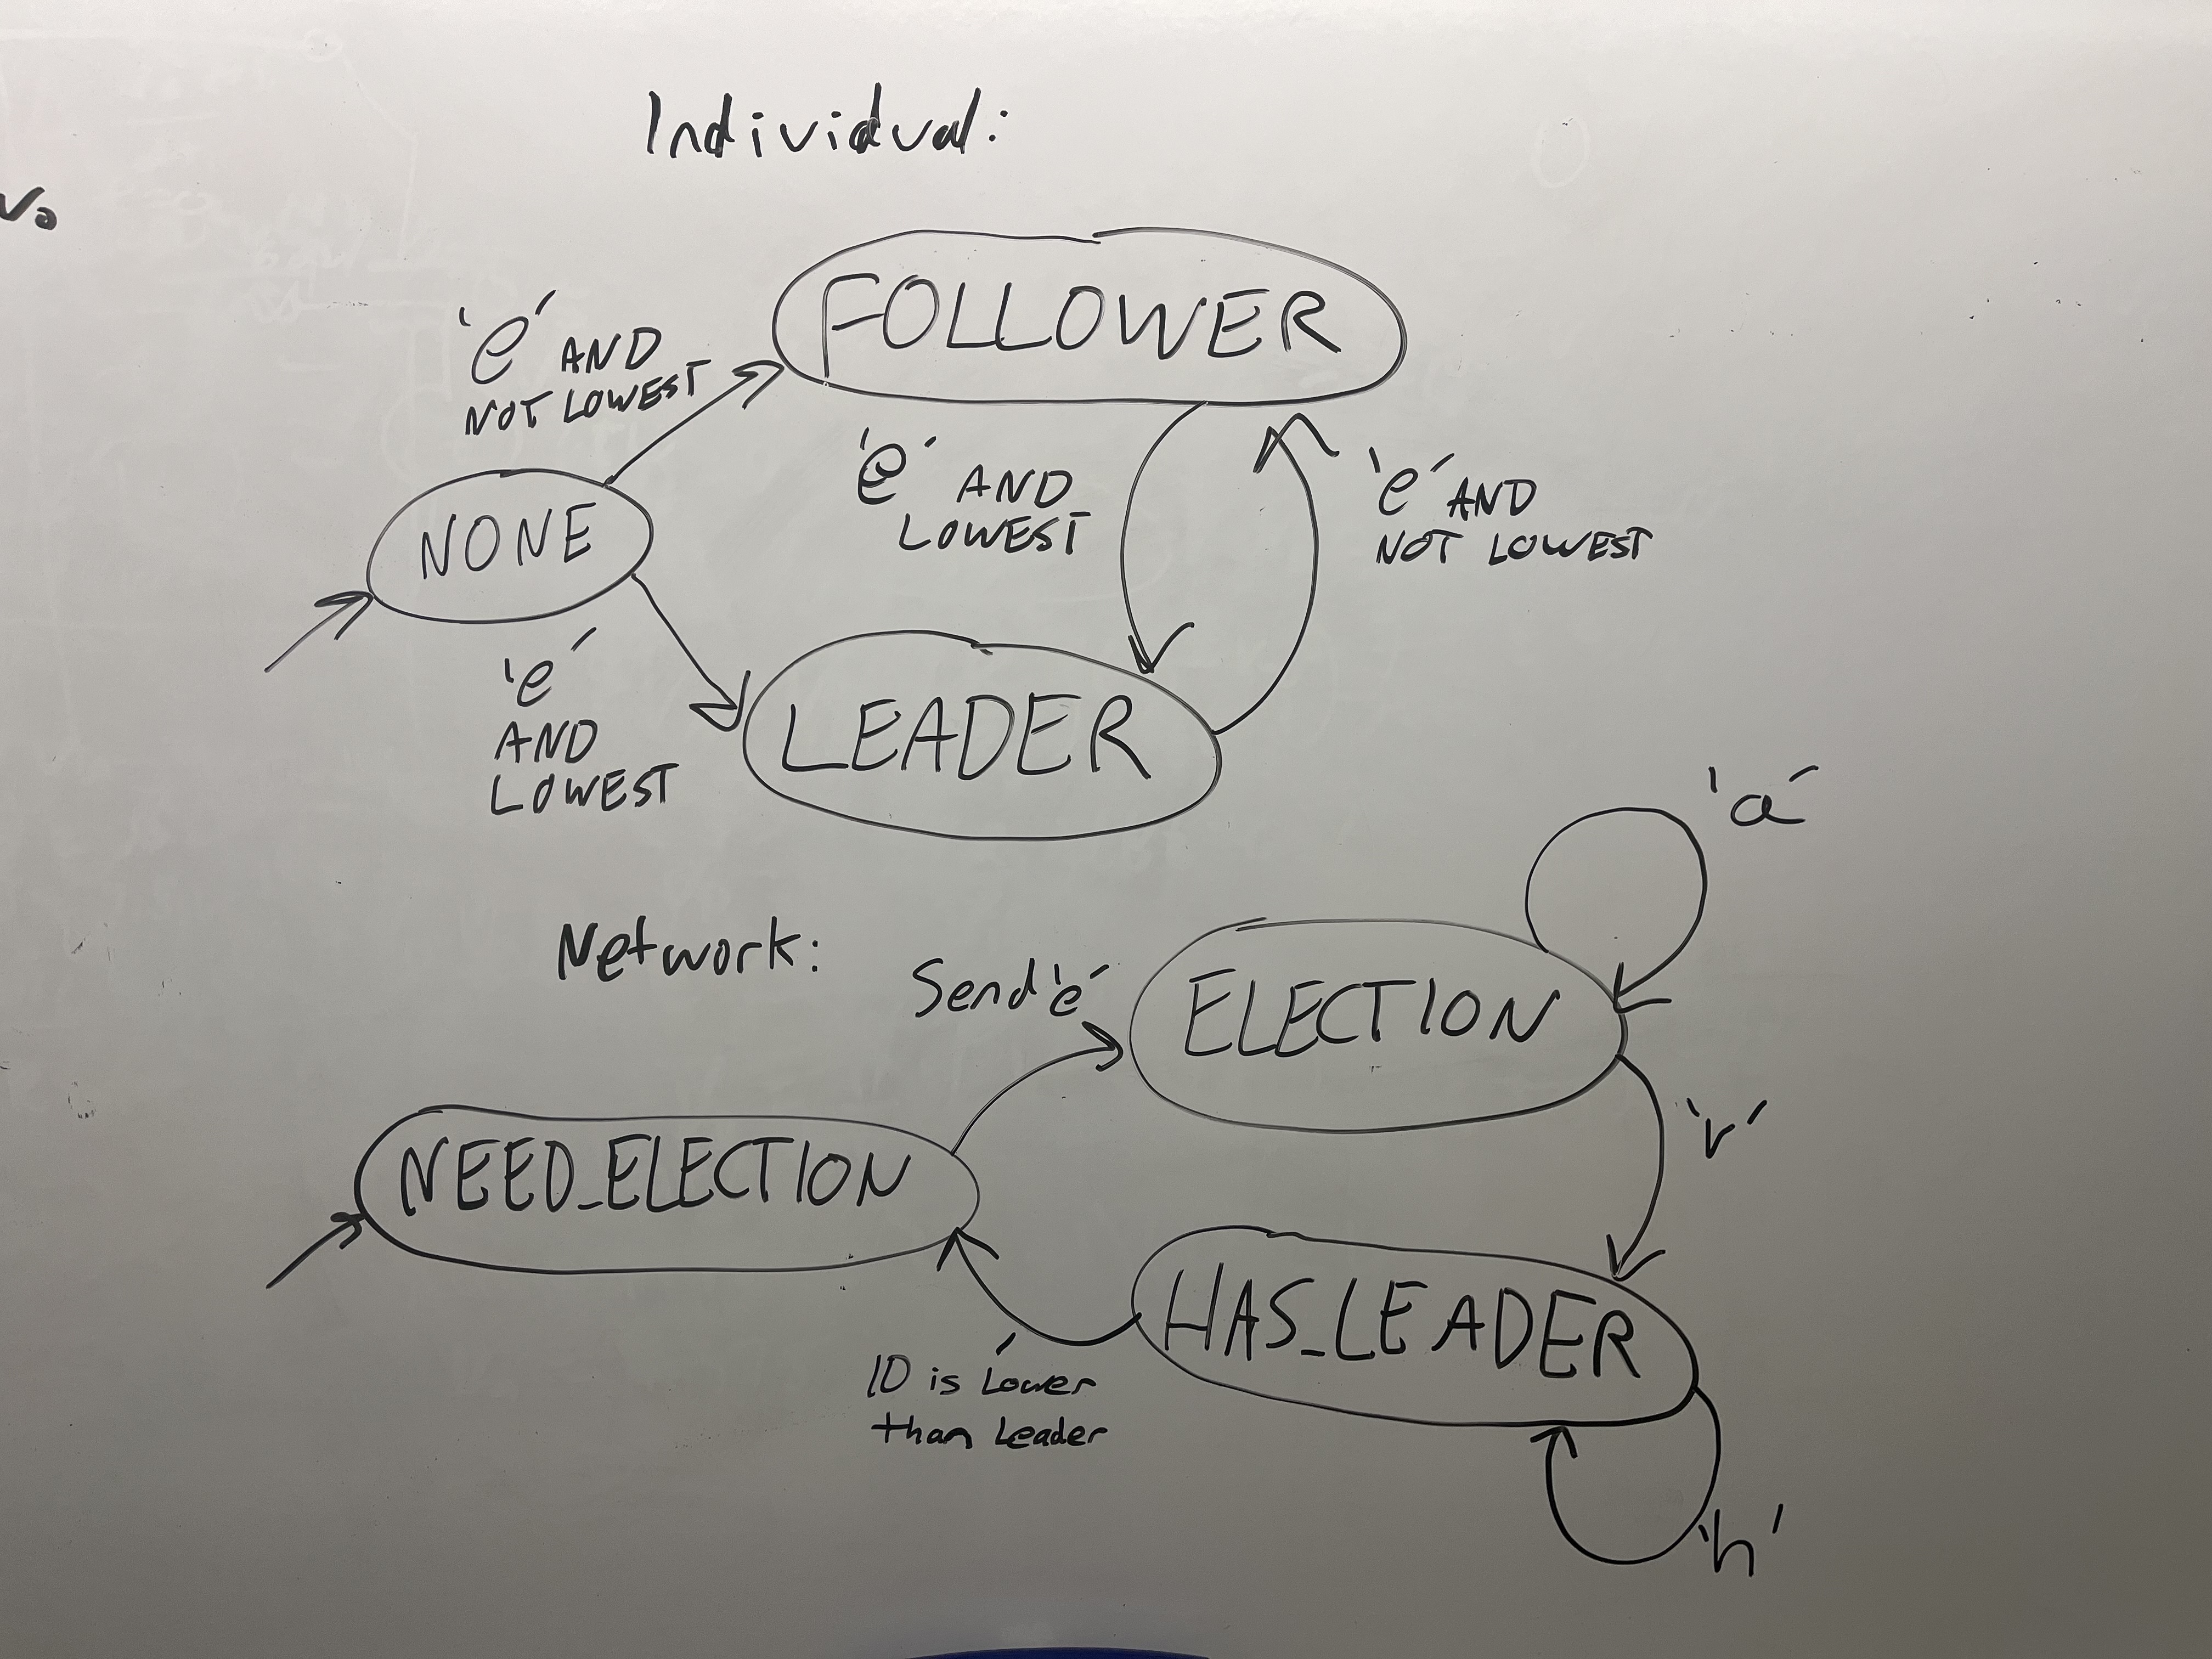 Individual:
'e' AND
NOT LOWEST
FOLLOWER
'e' AND
LOWEST
'e' AND
NOT LOWEST
NONE
'e'
AND
LOWEST
LEADER
Network:
'a'
Send 'e'
ELECTION
'r'
NEED_ELECTION
HAS_LEADER
ID is Lower
than Leader
'h'